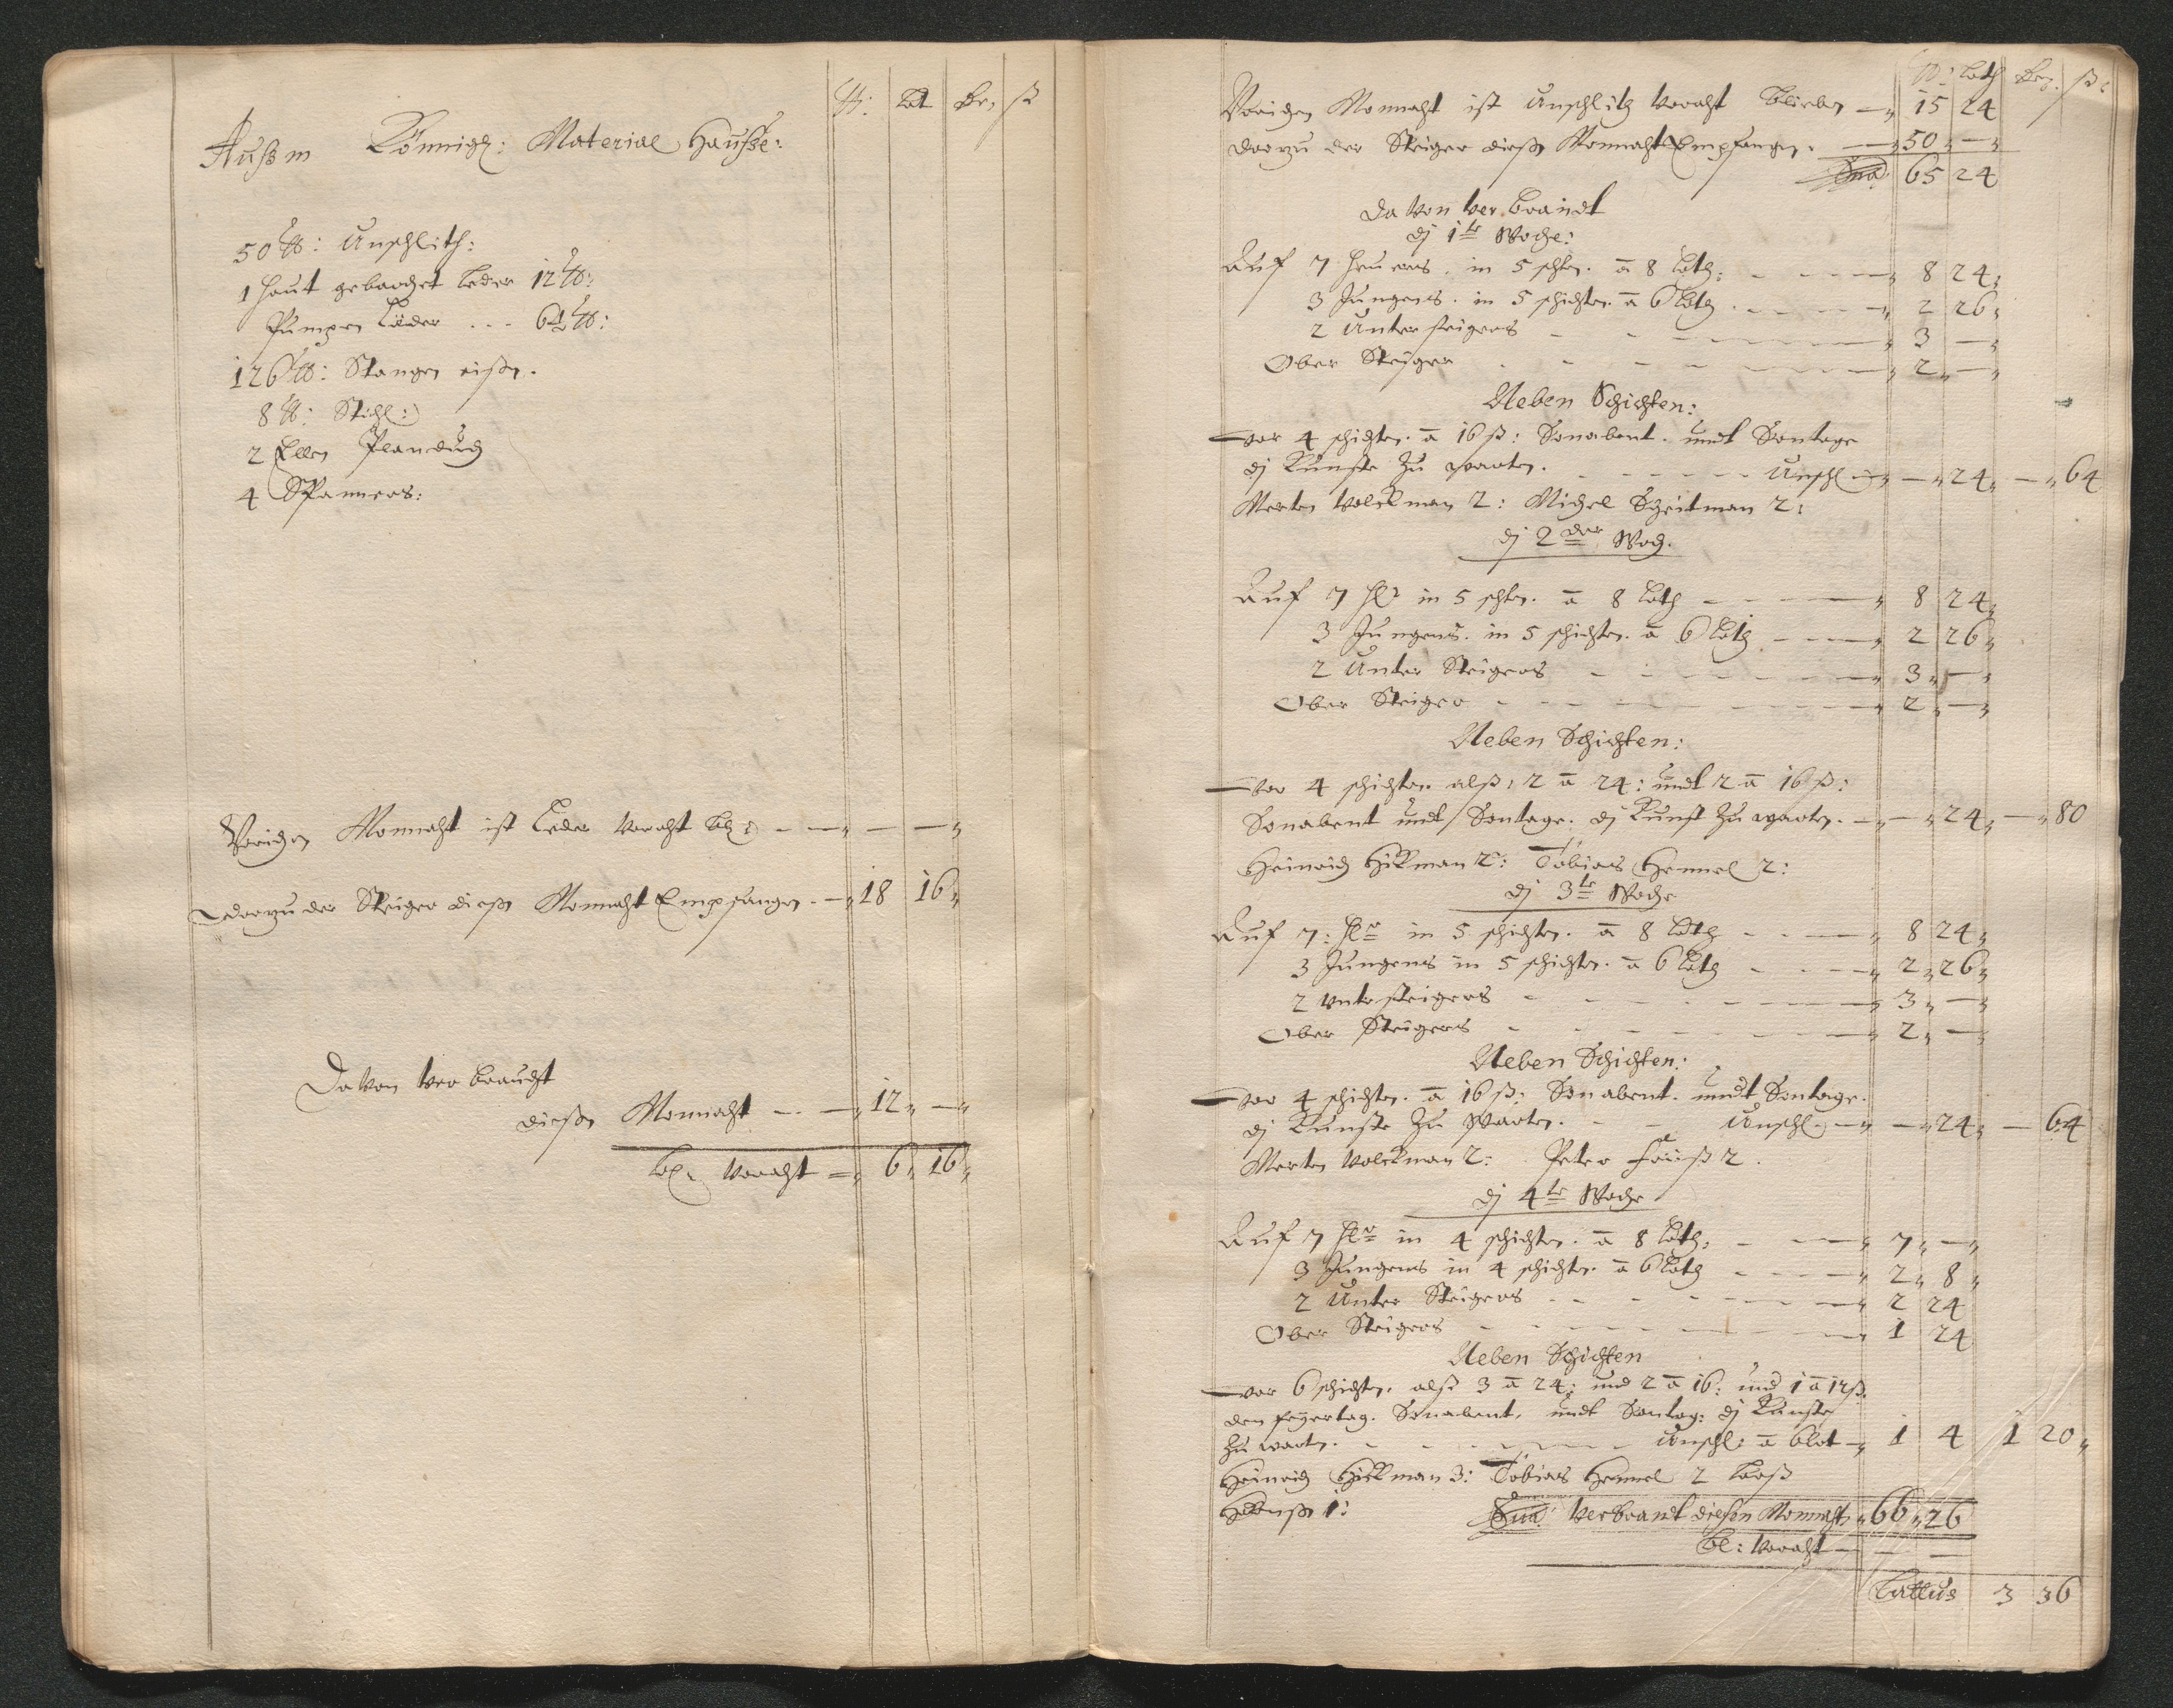 ℔: Lot Br, ß
Außm Könnigl: Material Hauße:
50 ℔: Unschlith:
1 Haut gebarchet Leder 12 ℔:
Pumpen Läder . . . 6½ ℔:
126 ℔: Stangen eißn.
8 ℔: Stahl:
2 Ellen Planduch
4 Spanners:
Vorigen Monnaht ist Leder Voraht bl: — — —
Darzu der Steiger dießn Monnaht Empfangen. — 18 16
Da Von Verbraucht
dießn Monnaht — 12 —
bl: Voraht — 6 16
℔: Loth Br. ß:
Vorigen Monnaht ist Unschlitz Voraht blieben — 15 24
Darzu der Steiger dießn Monnaht Empfangen. — 50 —
Sua 65 24
Da Von Verbrandt
dj 1te Woche:
Auf 7 Heuers. in 5 schtn. a 8 Loth: — 8 24
3 Jungens. in 5 schichtn. a 6 Loth — 2 26
2 Untersteigers — 3 —
Ober Steiger — 2 —
Neben Schichten:
Vor 4 schichtn. a 16 ß: Sonabent. undt Sontage
dj Künste Zu warten. Unschl: — 24 — 64
Merten Volckman 2: Michel 2:
dj 2der Woch.
Auf 7 Hr in 5 schtn. a 8 Loth — 8 24
3 Jungens. in 5 schichtn. a 6 Loth — 2 26
2 Unter Steigers — 3 —
Ober Steiger — 2 —
Neben Schichten:
Vor 4 schichtn. alß: 2 a 24: undt 2 a 16 ß:
Sonabent undt Sontage. dj Kunst Zu warten. — 24 — 80
Heinrich Hickman 2: Tobias Hennel 2:
dj 3te Woche
Auf 7: Hr in 5 schichtn. a 8 Loth — 8 24
3 Jungens in 5 schichtn. a 6 Loth — 2 26
2 Untersteigers — 3 —
Ober Steigers — 2 —
Neben Schichten:
Vor 4 schichtn. a 16 ß: Sonabent. undt Sontage.
dj Künste Zu Warten. Unschl: — 24 — 64
Merten Volckman 2: Peter 2.
dj 4te Woche
Auf 7 Hr in 4 schichtn. a 8 Loth: — 7 —
3 Jungens in 4 schichtn. a 6 Loth — 2 8
2 Unter Steigers — 2 24
Ober Steigers — 1 24
Neben Schichten
vor 6 schichtn. alß 3 a 24: und 2 a 16: und 1 a 12 ß.
den feyertag. Sonabent. undt Sontag: dj Künste
Zu warten. Unschl: a 6 Lot — 1 4 1 20
Heinrich Hickman 3: Tobias Hennel 2
1:
Sua: Verbrandt diesen Monnaht 66 26
bl: Voraht — —
Lattus 3 36